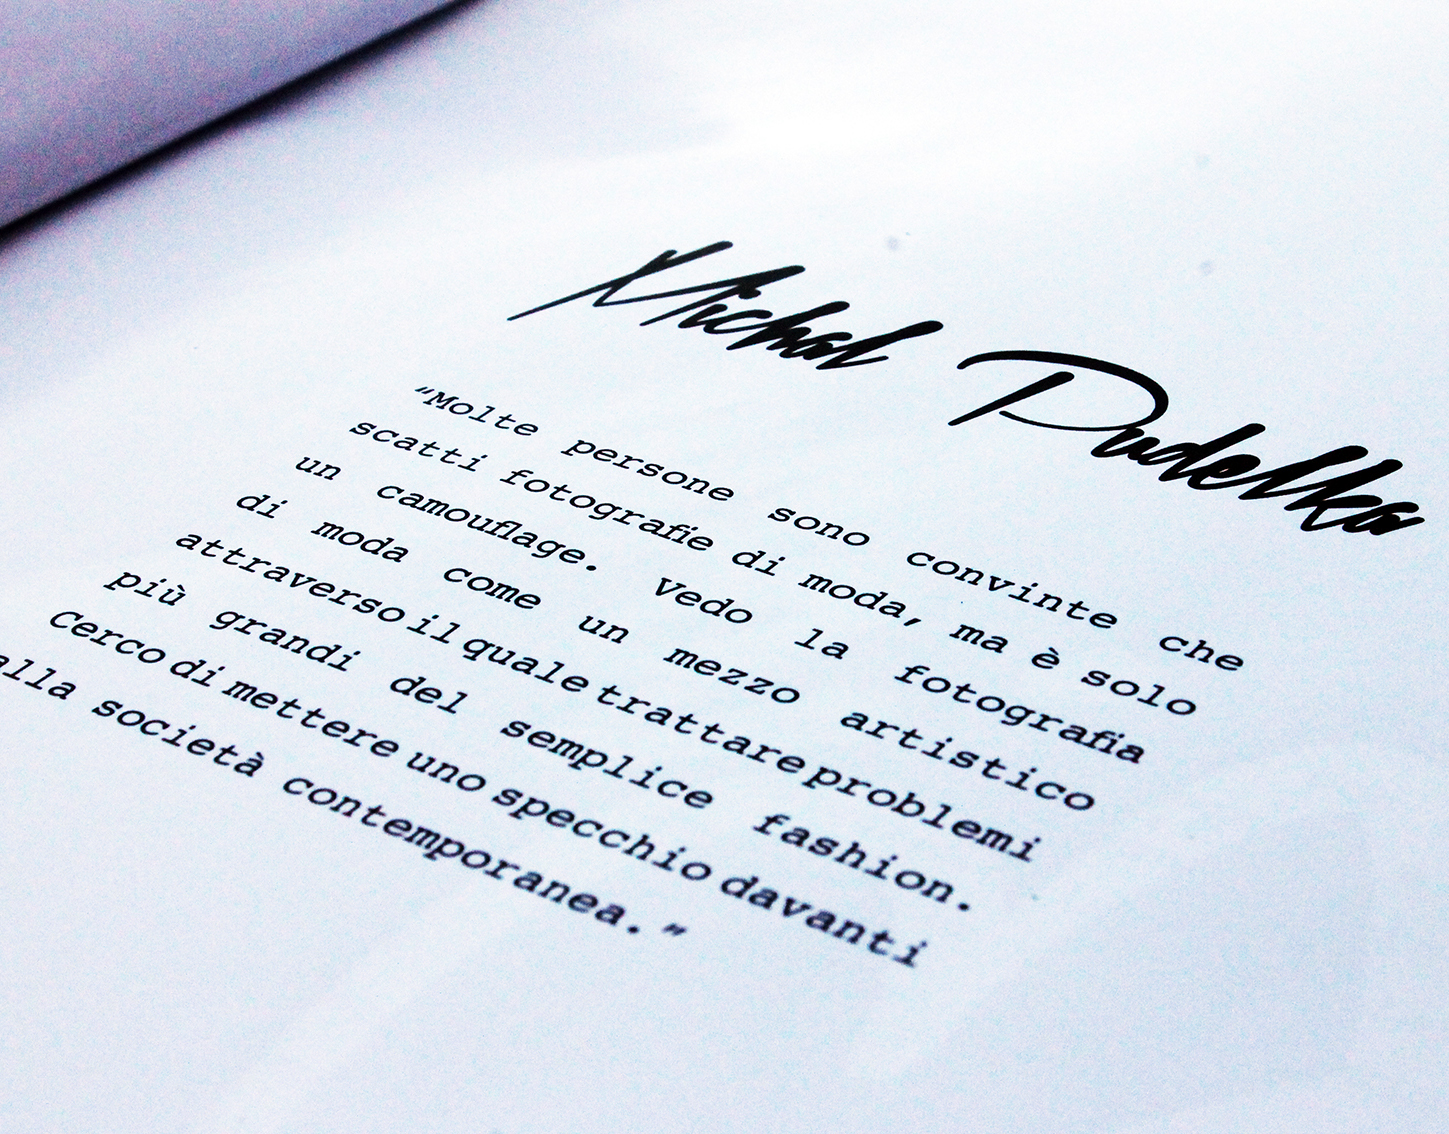 Michal Pudelka
"Molte persone sono convinte che
scatti fotografie di moda, ma è solo
un camouflage. Vedo la fotografia
di moda come un mezzo artistico
attraverso il quale trattare problemi
più grandi del semplice fashion.
Cerco di mettere uno specchio davanti
alla società contemporanea."